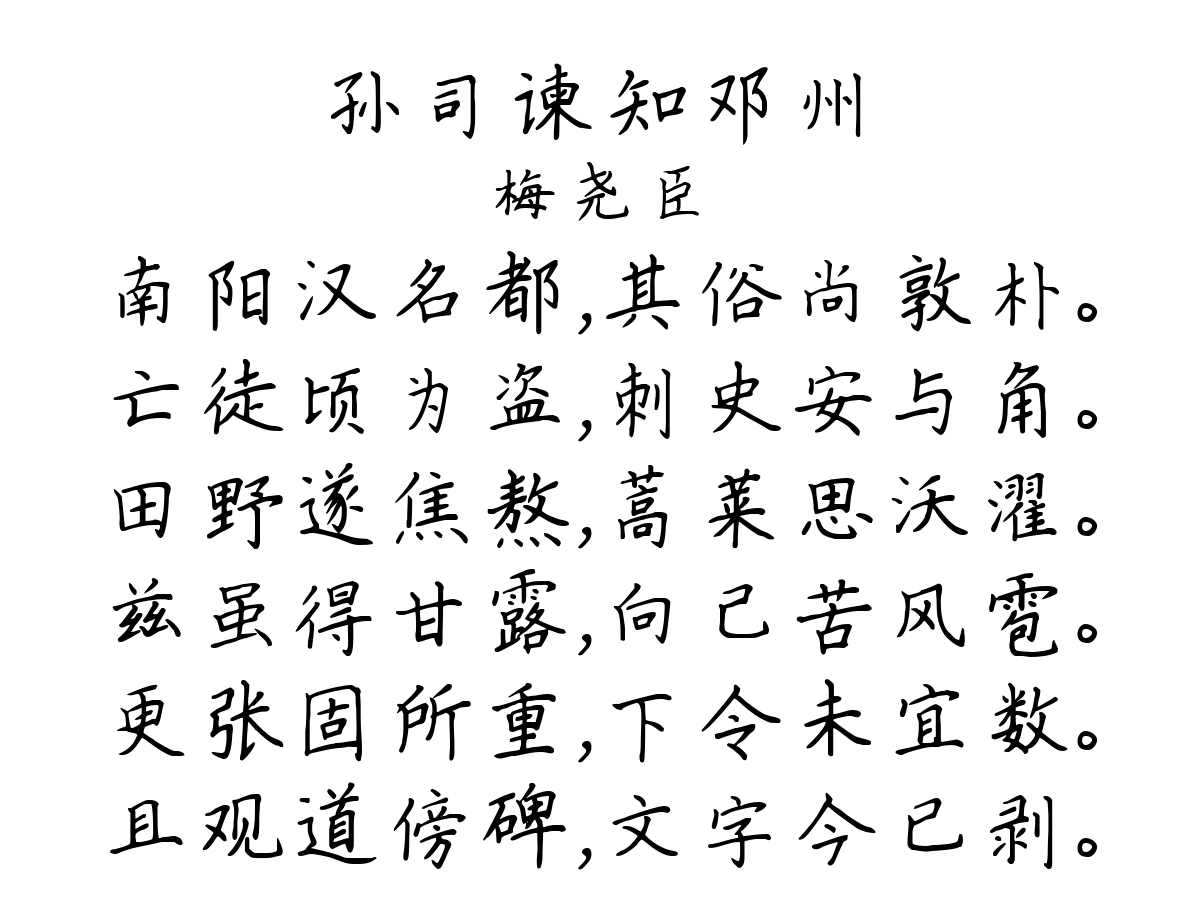 孙司谏知邓州
梅尧臣
南阳汉名都,其俗尚敦朴。
亡徒顷为盗,刺史安与角。
田野遂焦熬,蒿莱思沃濯。
兹虽得甘露,向已苦风雹。
更张固所重,下令未宜数。
且观道傍碑,文字今已剥。